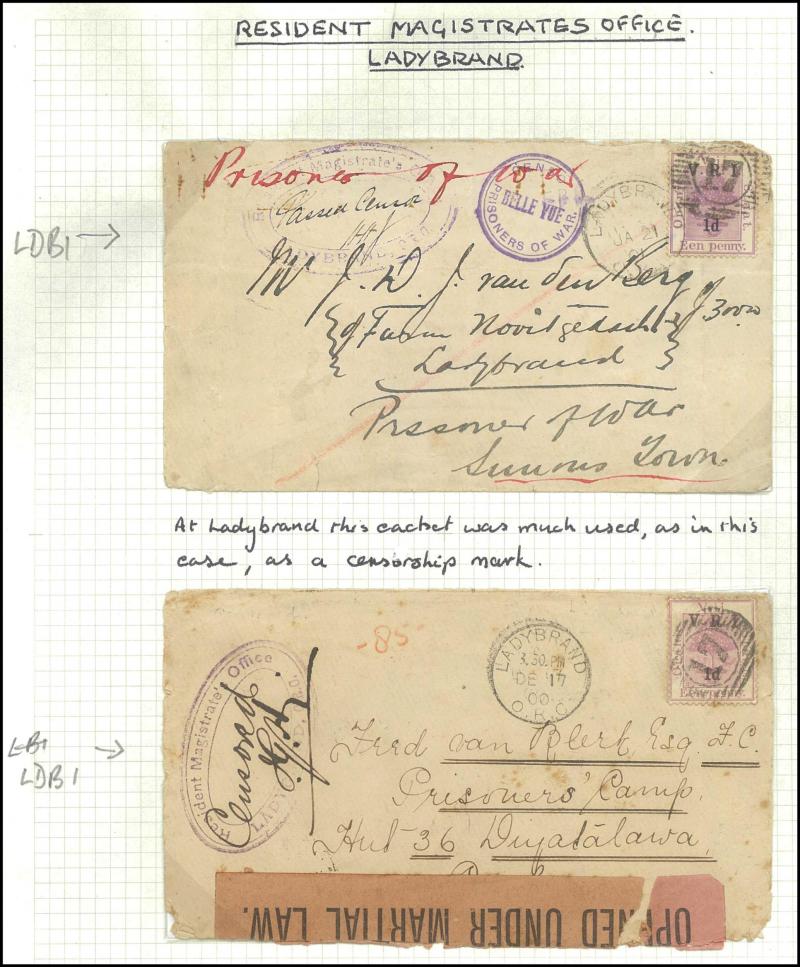 RESIDENT MAGISTRATES OFFICE.
LADYBRAND.
LDB1
Prisoner of War
Magistrate's
Passed Censor
LADYBRAND,
BELLE VUE
PRISONERS OF WAR.
LADYBRAND
JA 21
V.R.I.
1d
Een penny.
Mr J. D. J. van den Berg
of Farm Novitgedacht
Ladybrand
Prisoner of War
Simons Town.
At Ladybrand this cachet was much used, as in this
case, as a censorship mark.
LB1
LDB1
Resident Magistrate's Office
LADY
Censored
-85-
LADYBRAND
3.30.PM
DE 17
00
O.R.C.
V.R.I.
1d
Een penny.
Fred van Blerk Esq F.C.
Prisoners' Camp
Hut 36 Diyatalawa
OPENED UNDER MARTIAL LAW.